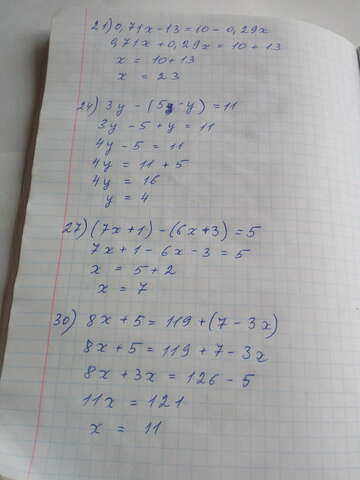 21) 0,71x - 13 = 10 - 0,29x
0,71x + 0,29x = 10 + 13
x = 10 + 13
x = 23
24) 3y - (5 - y) = 11
3y - 5 + y = 11
4y - 5 = 11
4y = 11 + 5
4y = 16
y = 4
27) (7x + 1) - (6x + 3) = 5
7x + 1 - 6x - 3 = 5
x = 5 + 2
x = 7
30) 8x + 5 = 119 + (7 - 3x)
8x + 5 = 119 + 7 - 3x
8x + 3x = 126 - 5
11x = 121
x = 11